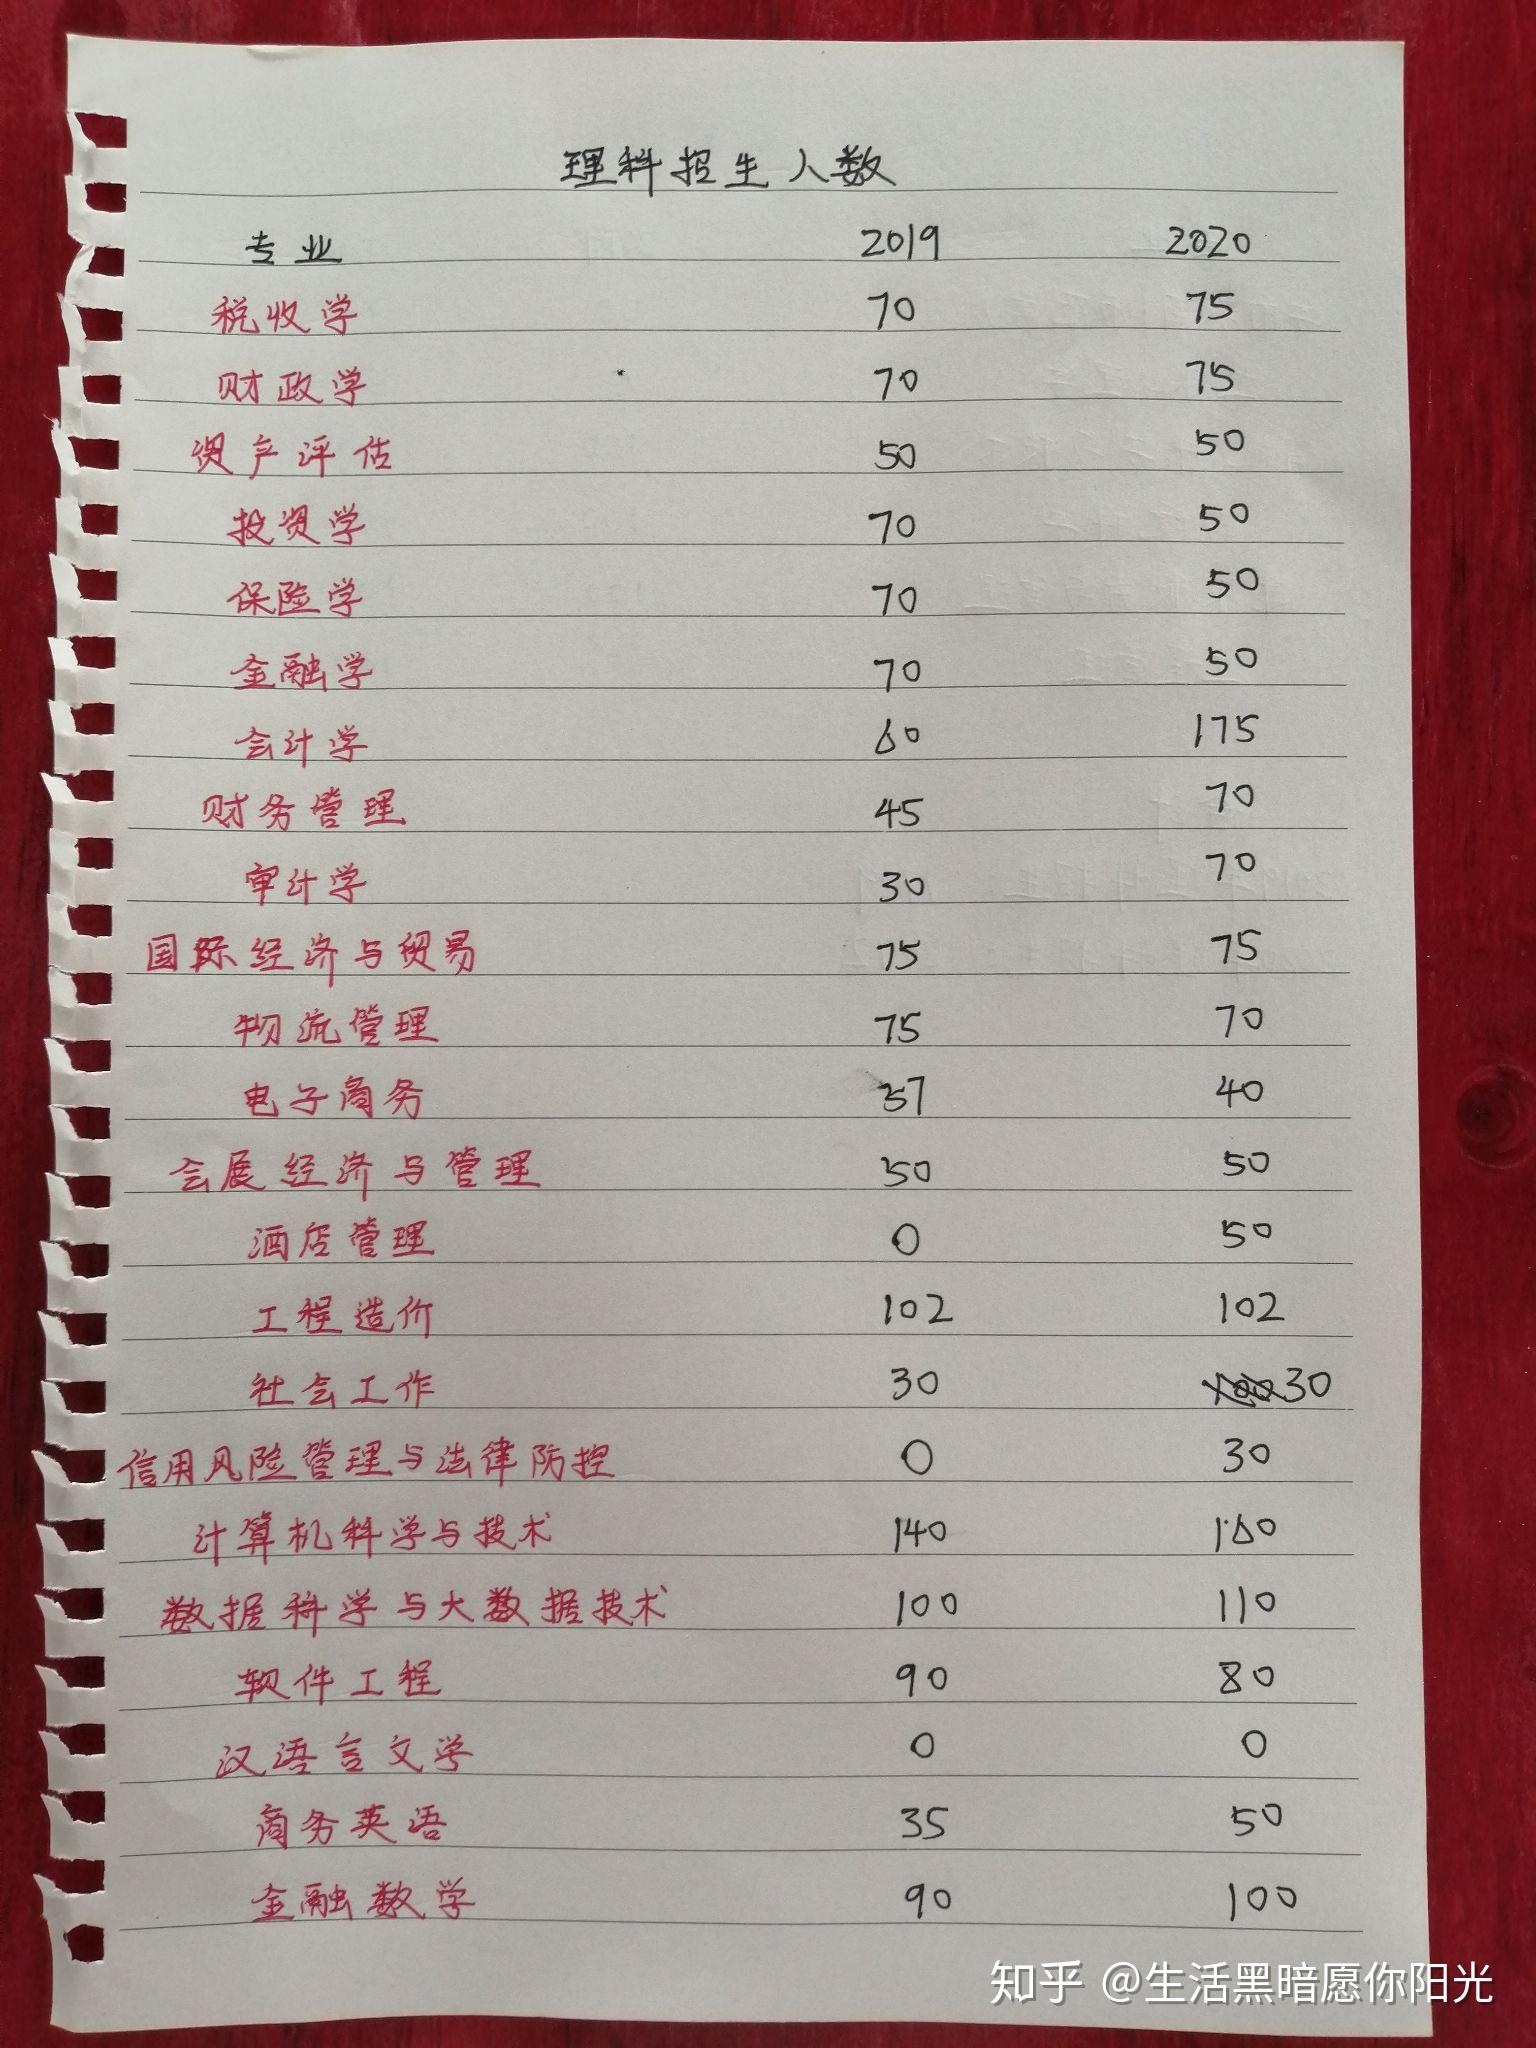 理科招生人数
专业 2019 2020
税收学 70 75
财政学 70 75
资产评估 50 50
投资学 70 50
保险学 70 50
金融学 70 50
会计学 60 175
财务管理 45 70
审计学 30 70
国际经济与贸易 75 75
物流管理 75 70
电子商务 37 40
会展经济与管理 50 50
酒店管理 0 50
工程造价 102 102
社会工作 30 30
信用风险管理与法律防控 0 30
计算机科学与技术 140 160
数据科学与大数据技术 100 110
软件工程 90 80
汉语言文学 0 0
商务英语 35 50
金融数学 90 100
知乎 @生活黑暗愿你阳光